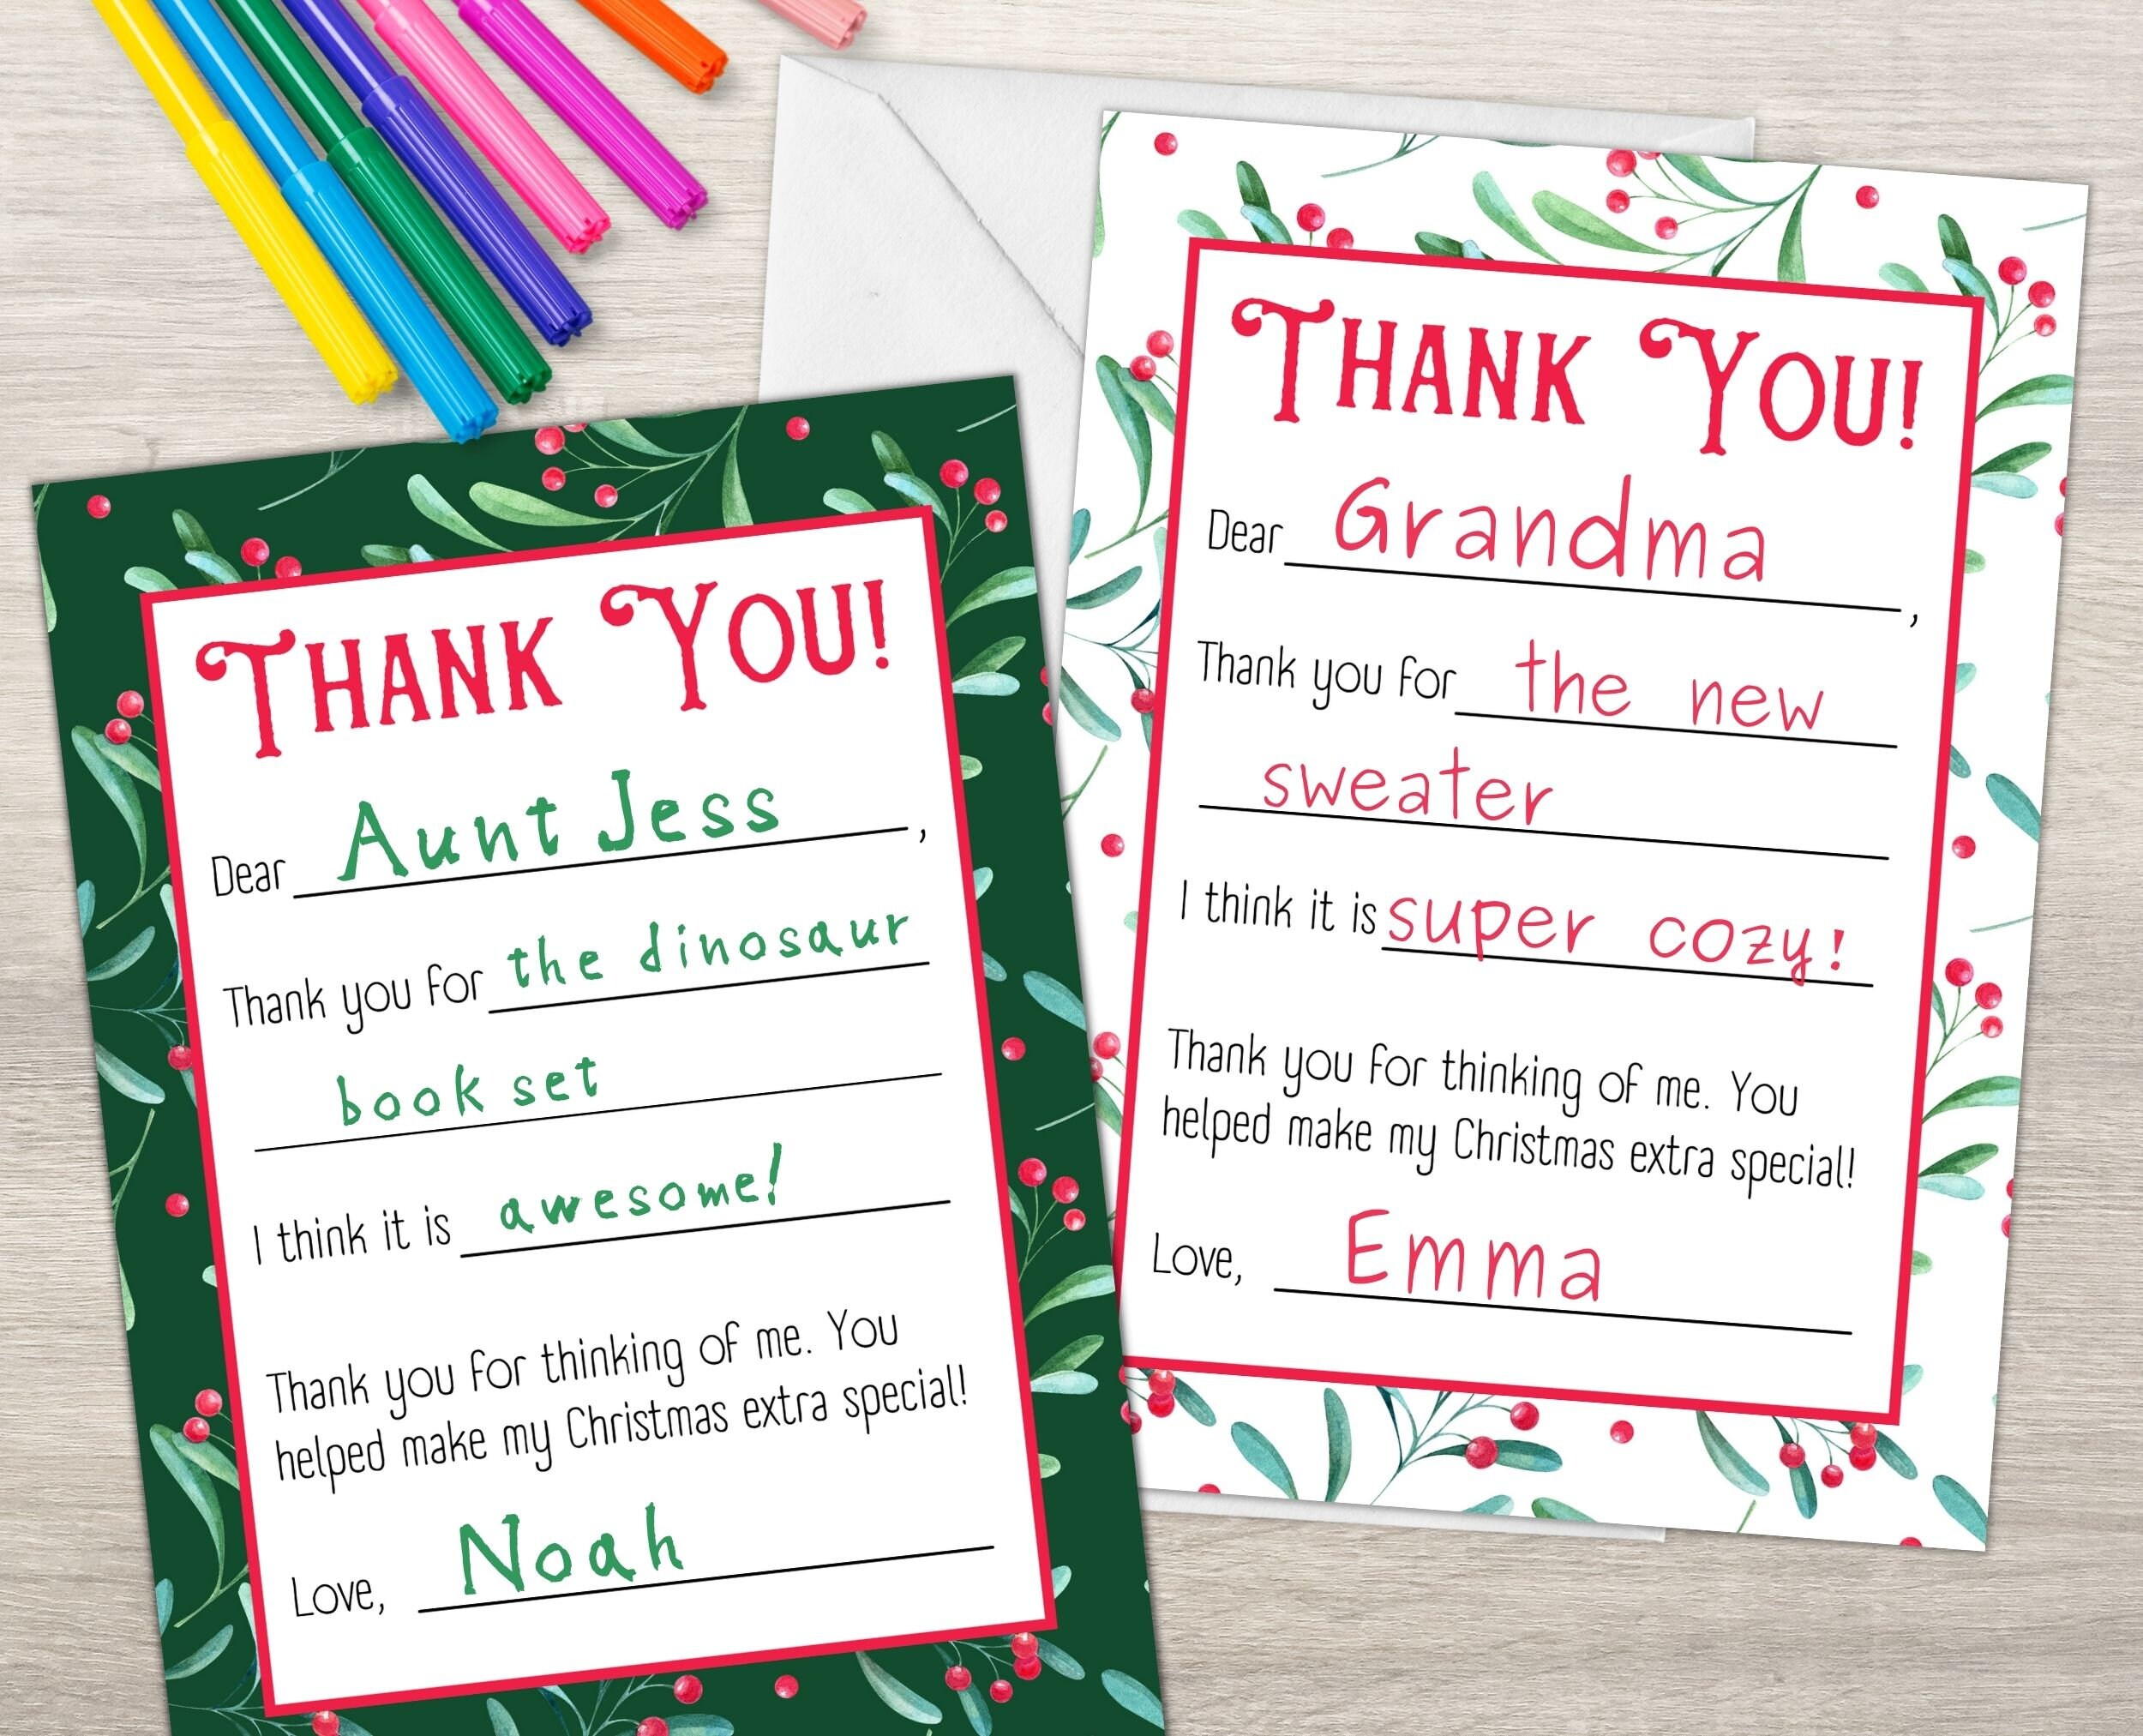 THANK YOU!
Dear Aunt Jess,
Thank you for the dinosaur
book set
I think it is awesome!
Thank you for thinking of me. You
helped make my Christmas extra special!
Love, Noah
THANK YOU!
Dear Grandma,
Thank you for the new
sweater
I think it is super cozy!
Thank you for thinking of me. You
helped make my Christmas extra special!
Love, Emma